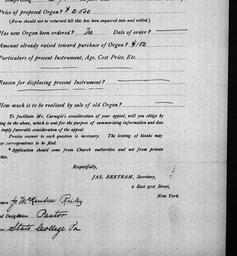 Price of proposed Organ? $2,500
(Form should not be returned till this has been enquired into and settled.)
Has new Organ been ordered? No Date of order?
Amount already raised toward purchase of Organ? $152
Particulars of present Instrument, Age, Cost Price, Etc.
Reason for displacing present Instrument?
How much is to be realized by sale of old Organ?
To facilitate Mr. Carnegie's consideration of appeal, will you oblige by
ing in the above, which is sent for the purpose of summarizing information and does
imply favorable consideration of the appeal.
Precise answer to each question is necessary. The leaving of blanks may
se correspondence to be filed.
* Application should come from Church authorities and not from private
ties.
Respectfully,
JAS. BERTRAM, Secretary,
2 East 91st Street,
New York.
J. McKendree Reiley
al Designation Pastor
State College Pa